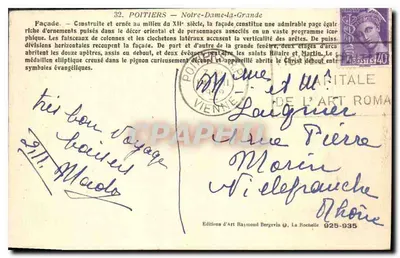 32. POITIERS — Notre-Dame-la-Grande
Façade. — Construite et ornée au milieu du XIIe siècle, la façade constitue une admirable page équi-
riche d'ornements puisés dans le décor oriental et de personnages associés en un vaste programme ico-
phique. Les faisceaux de colonnes et les clochetons latéraux accusent la verticalité des arêtes. De puis
divisions horizontales recoupent la façade. De part et d'autre de la grande fenêtre, deux étages d'arca
abritent les douze apôtres, assis ou debout, et vers l'extérieur les saints Hilaire et Martin. Le
médaillon elliptique creusé dans le pignon curieusement décoré et appareillé abrite le Christ debout entre
symboles évangéliques.
POSTES 40c
VIENNE
CAPITALE
DE L'ART ROMA
Mme et Mr
Laugnier
rue Pierre
Morin
Villefranche
Rhône
très bon voyage
baisers
Mado
CPAPHIL
Editions d'Art Raymond Bergevin, La Rochelle 925-935